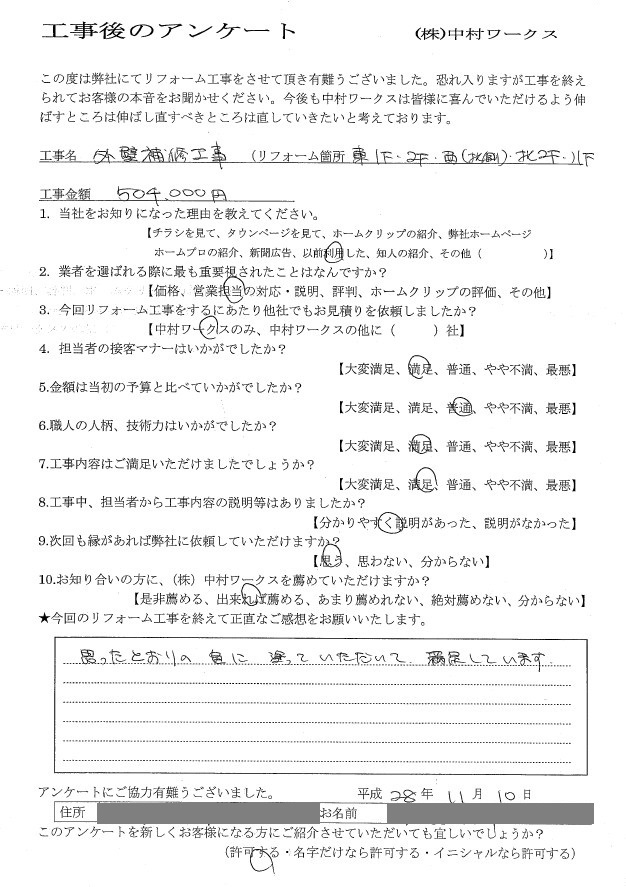 工事後のアンケート (株)中村ワークス
この度は弊社にてリフォーム工事をさせて頂き有難うございました。恐れ入りますが工事を終え
られてお客様の本音をお聞かせください。今後も中村ワークスは皆様に喜んでいただけるよう伸
ばすところは伸ばし直すべきところは直していきたいと考えております。
工事名 外壁補修工事 (リフォーム箇所 東1F・2F・西(北側)・北2F・1F
工事金額 504,000円
1. 当社をお知りになった理由を教えてください。
【チラシを見て、タウンページを見て、ホームクリップの紹介、弊社ホームページ
ホームプロの紹介、新聞広告、以前利用した、知人の紹介、その他( )】
2. 業者を選ばれる際に最も重要視されたことはなんですか?
【価格、営業担当の対応・説明、評判、ホームクリップの評価、その他】
3. 今回リフォーム工事をするにあたり他社でもお見積りを依頼しましたか?
【中村ワークスのみ、中村ワークスの他に( )社】
4. 担当者の接客マナーはいかがでしたか?
【大変満足、満足、普通、やや不満、最悪】
5.金額は当初の予算と比べていかがでしたか?
【大変満足、満足、普通、やや不満、最悪】
6.職人の人柄、技術力はいかがでしたか?
【大変満足、満足、普通、やや不満、最悪】
7.工事内容はご満足いただけましたでしょうか?
【大変満足、満足、普通、やや不満、最悪】
8.工事中、担当者から工事内容の説明等はありましたか?
【分かりやすく説明があった、説明がなかった】
9.次回も縁があれば弊社に依頼していただけますか?
【思う、思わない、分からない】
10.お知り合いの方に、(株)中村ワークスを薦めていただけますか?
【是非薦める、出来れば薦める、あまり薦めれない、絶対薦めない、分からない】
★今回のリフォーム工事を終えて正直なご感想をお願いいたします。
思ったとおりの色に塗っていただいて、満足しています。
アンケートにご協力有難うございました。 平成 28 年 11 月 10 日
住所 お名前
このアンケートを新しくお客様になる方にご紹介させていただいても宜しいでしょうか?
(許可する・名字だけなら許可する・イニシャルなら許可する)